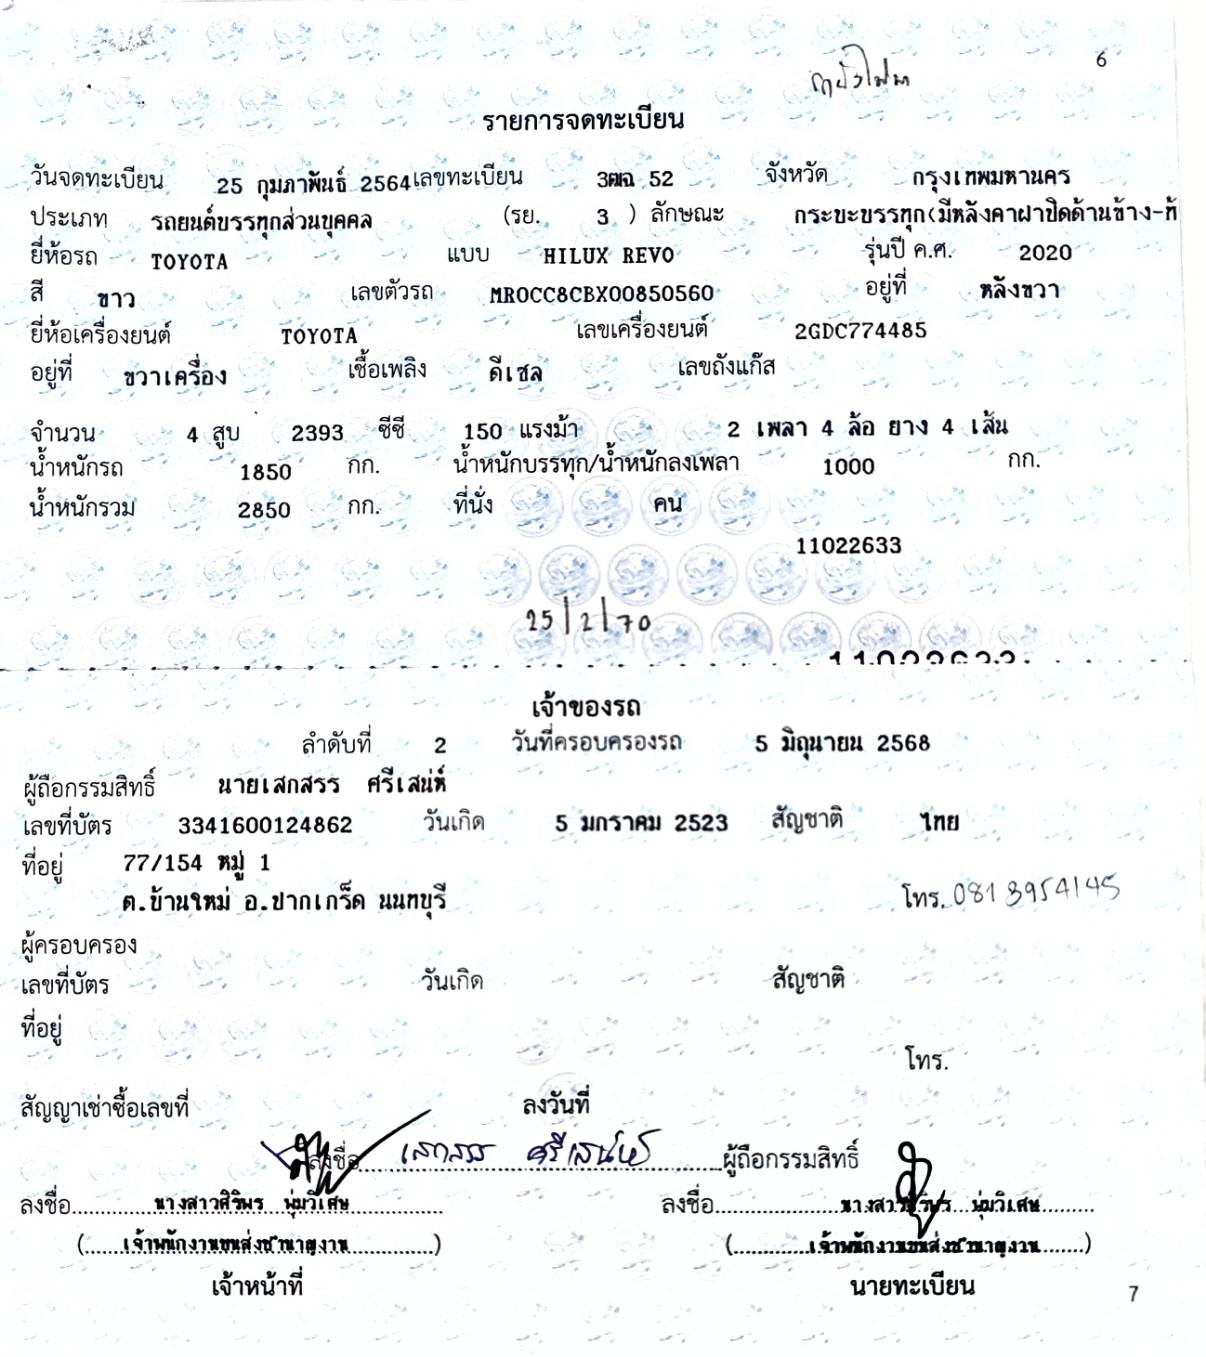 6
รายการจดทะเบียน
วันจดทะเบียน 25 กุมภาพันธ์ 2564 เลขทะเบียน 3ฒฉ 52 จังหวัด กรุงเทพมหานคร
ประเภท รถยนต์บรรทุกส่วนบุคคล (รย. 3 ) ลักษณะ กระบะบรรทุก(มีหลังคาฝาปิดด้านข้าง-ท้
ยี่ห้อรถ TOYOTA แบบ HILUX REVO รุ่นปี ค.ศ. 2020
สี ขาว เลขตัวรถ MR0CC8CBX00850560 อยู่ที่ หลังขวา
ยี่ห้อเครื่องยนต์ TOYOTA เลขเครื่องยนต์ 2GDC774485
อยู่ที่ ขวาเครื่อง เชื้อเพลิง ดีเซล เลขถังแก๊ส
จำนวน 4 สูบ 2393 ซีซี 150 แรงม้า 2 เพลา 4 ล้อ ยาง 4 เส้น
น้ำหนักรถ 1850 กก. น้ำหนักบรรทุก/น้ำหนักลงเพลา 1000 กก.
น้ำหนักรวม 2850 กก. ที่นั่ง คน
11022633
25/2/70
11022633
เจ้าของรถ
ลำดับที่ 2 วันที่ครอบครองรถ 5 มิถุนายน 2568
ผู้ถือกรรมสิทธิ์ นายเสกสรร ศรีเสน่ห์
เลขที่บัตร 3341600124862 วันเกิด 5 มกราคม 2523 สัญชาติ ไทย
ที่อยู่ 77/154 หมู่ 1
ต.บ้านใหม่ อ.ปากเกร็ด นนทบุรี โทร. 081 3954145
ผู้ครอบครอง
เลขที่บัตร วันเกิด สัญชาติ
ที่อยู่
โทร.
สัญญาเช่าซื้อเลขที่ ลงวันที่
ลงชื่อ เสกสรร ศรีเสน่ห์ ผู้ถือกรรมสิทธิ์
ลงชื่อ นางสาวศิริพร พุ่มวิเศษ ลงชื่อ นางสาวศิริพร พุ่มวิเศษ
(เจ้าพนักงานขนส่งชำนาญงาน) (เจ้าพนักงานขนส่งชำนาญงาน)
เจ้าหน้าที่ นายทะเบียน
7